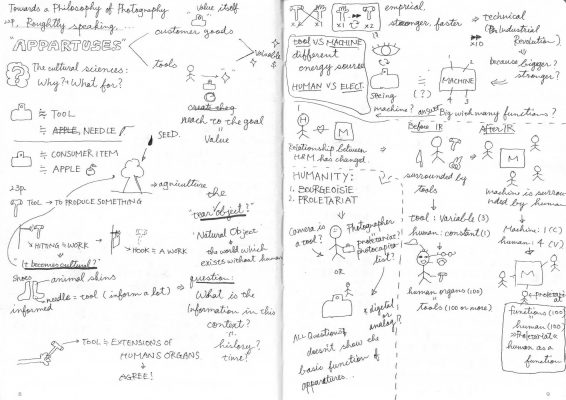 Towards a Philosophy of Photography
22p, Roughtly speaking...
"APPARTUSES"
value itself
customer goods
tools
valuable
The cultural sciences:
Why? + What for?
create the
reach to the goal
"Value
≒ TOOL
≒ APPLE, NEEDLE
SEED.
≒ CONSUMER ITEM
≒ APPLE
→ agriculture
23p.
TOOL → TO PRODUCE SOMETHING
the
"tear"object?"
"Natural Object
→ the world which
exists without human
HITTING ≒ WORK
HOOK ≒ A WORK
"it becomes cultural?"
shoes
animal skins
needle = tool (inform a lot)
informed
question:
What is the
Information in this
context?
history?
time?
→ TOOL ≒ EXTENSIONS OF
HUMANS ORGANS
→ AGREE!
8
empirical
stronger, faster
x1
x2
x10
→ technical
Industrial
Revolution)
TOOL VS MACHINE
different
energy source
HUMAN VS ELECT.
seeing
machine?
(?)
MACHINE
because bigger?
stronger?
Big with many functions?
H
M
Relationship between
H&M has changed.
Before IR
surrounded by
tools
tool : Variable (3)
human : constant (1)
human organs (100)
tools (100 or more)
After IR
M
machine is surroun
ded by human
Machine : 1 (C)
human : 4 (V)
M
functions (100)
human (100)
"Proletariat"
human as a
function
HUMANITY:
1. BOURGEOISIE
2. PROLETARIAT
Camera is
a tool?
Photographer
proletariat?
OR
x digital
or
analog?
ALL Question of
doesn't show the
basic function of
apparatures...
9